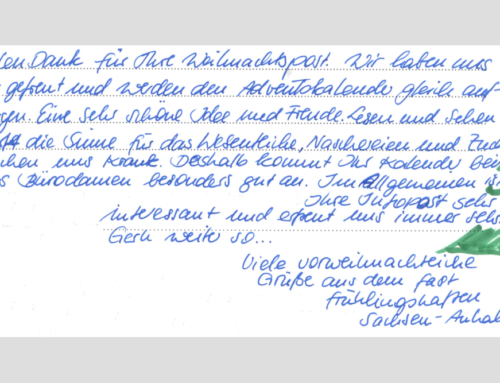 len Dank für Ihre Weihnachtspost. Wir haben uns
gefreut und werden den Adventskalender gleich auf-
gen. Eine sehr schöne Idee und Freude. Lesen und sehen
die Sinne für das Wesentliche, Naschereien und Zuc
chen uns krank. Deshalb kommt Ihr Kalender bei
s Bürodamen besonders gut an. Im Allgemeinen is
Ihre Infopost sehr
interessant und erfreut uns immer sehr.
Gern weiter so...
Viele vorweihnachtliche
Grüße aus dem fast
frühlingshaften
Sachsen-Anhal